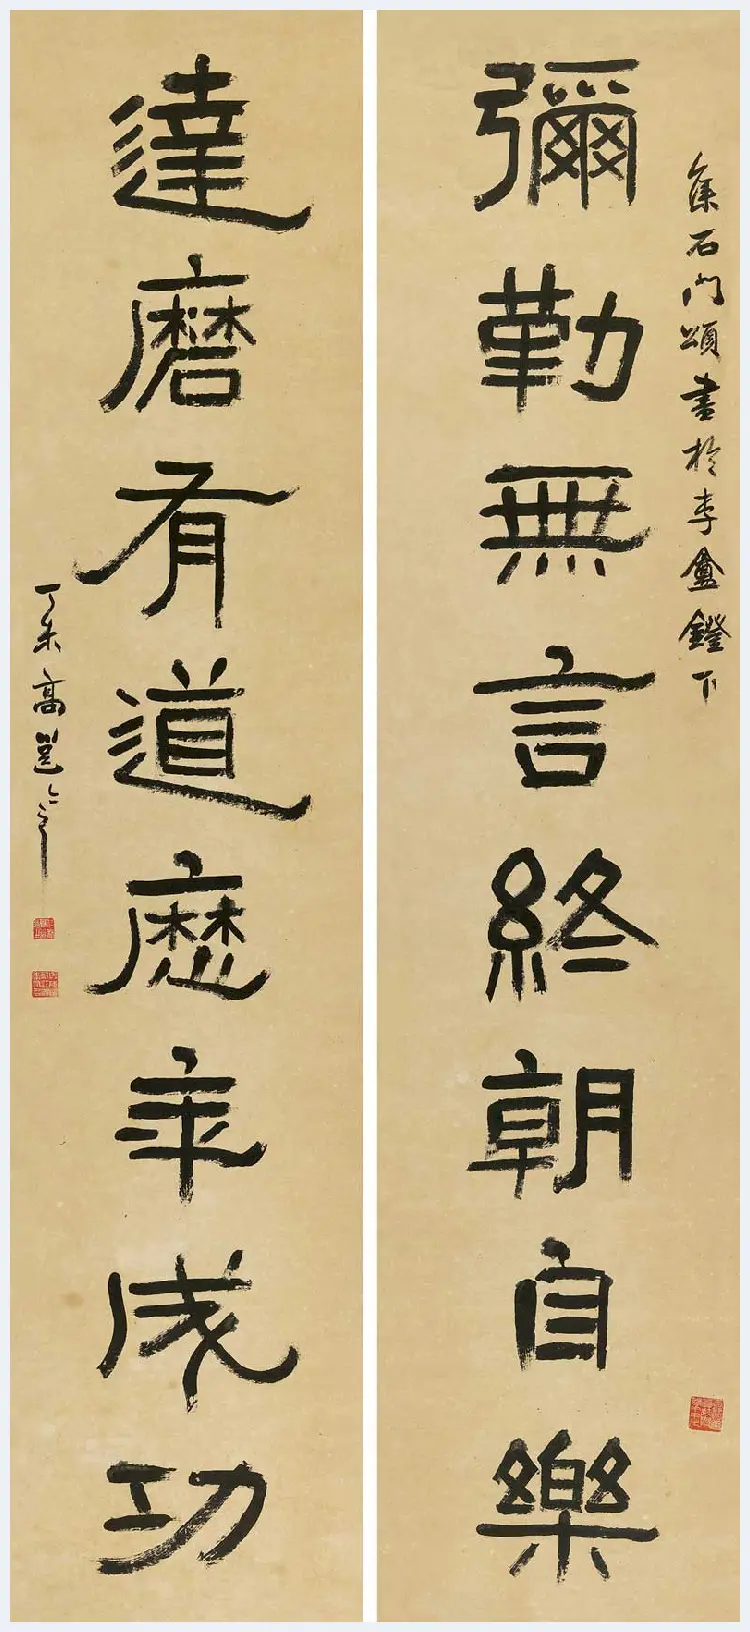 集石門頌書於李盦鐙下
彌勤無言終朝自樂
達磨有道歷年成功
丁未高邕